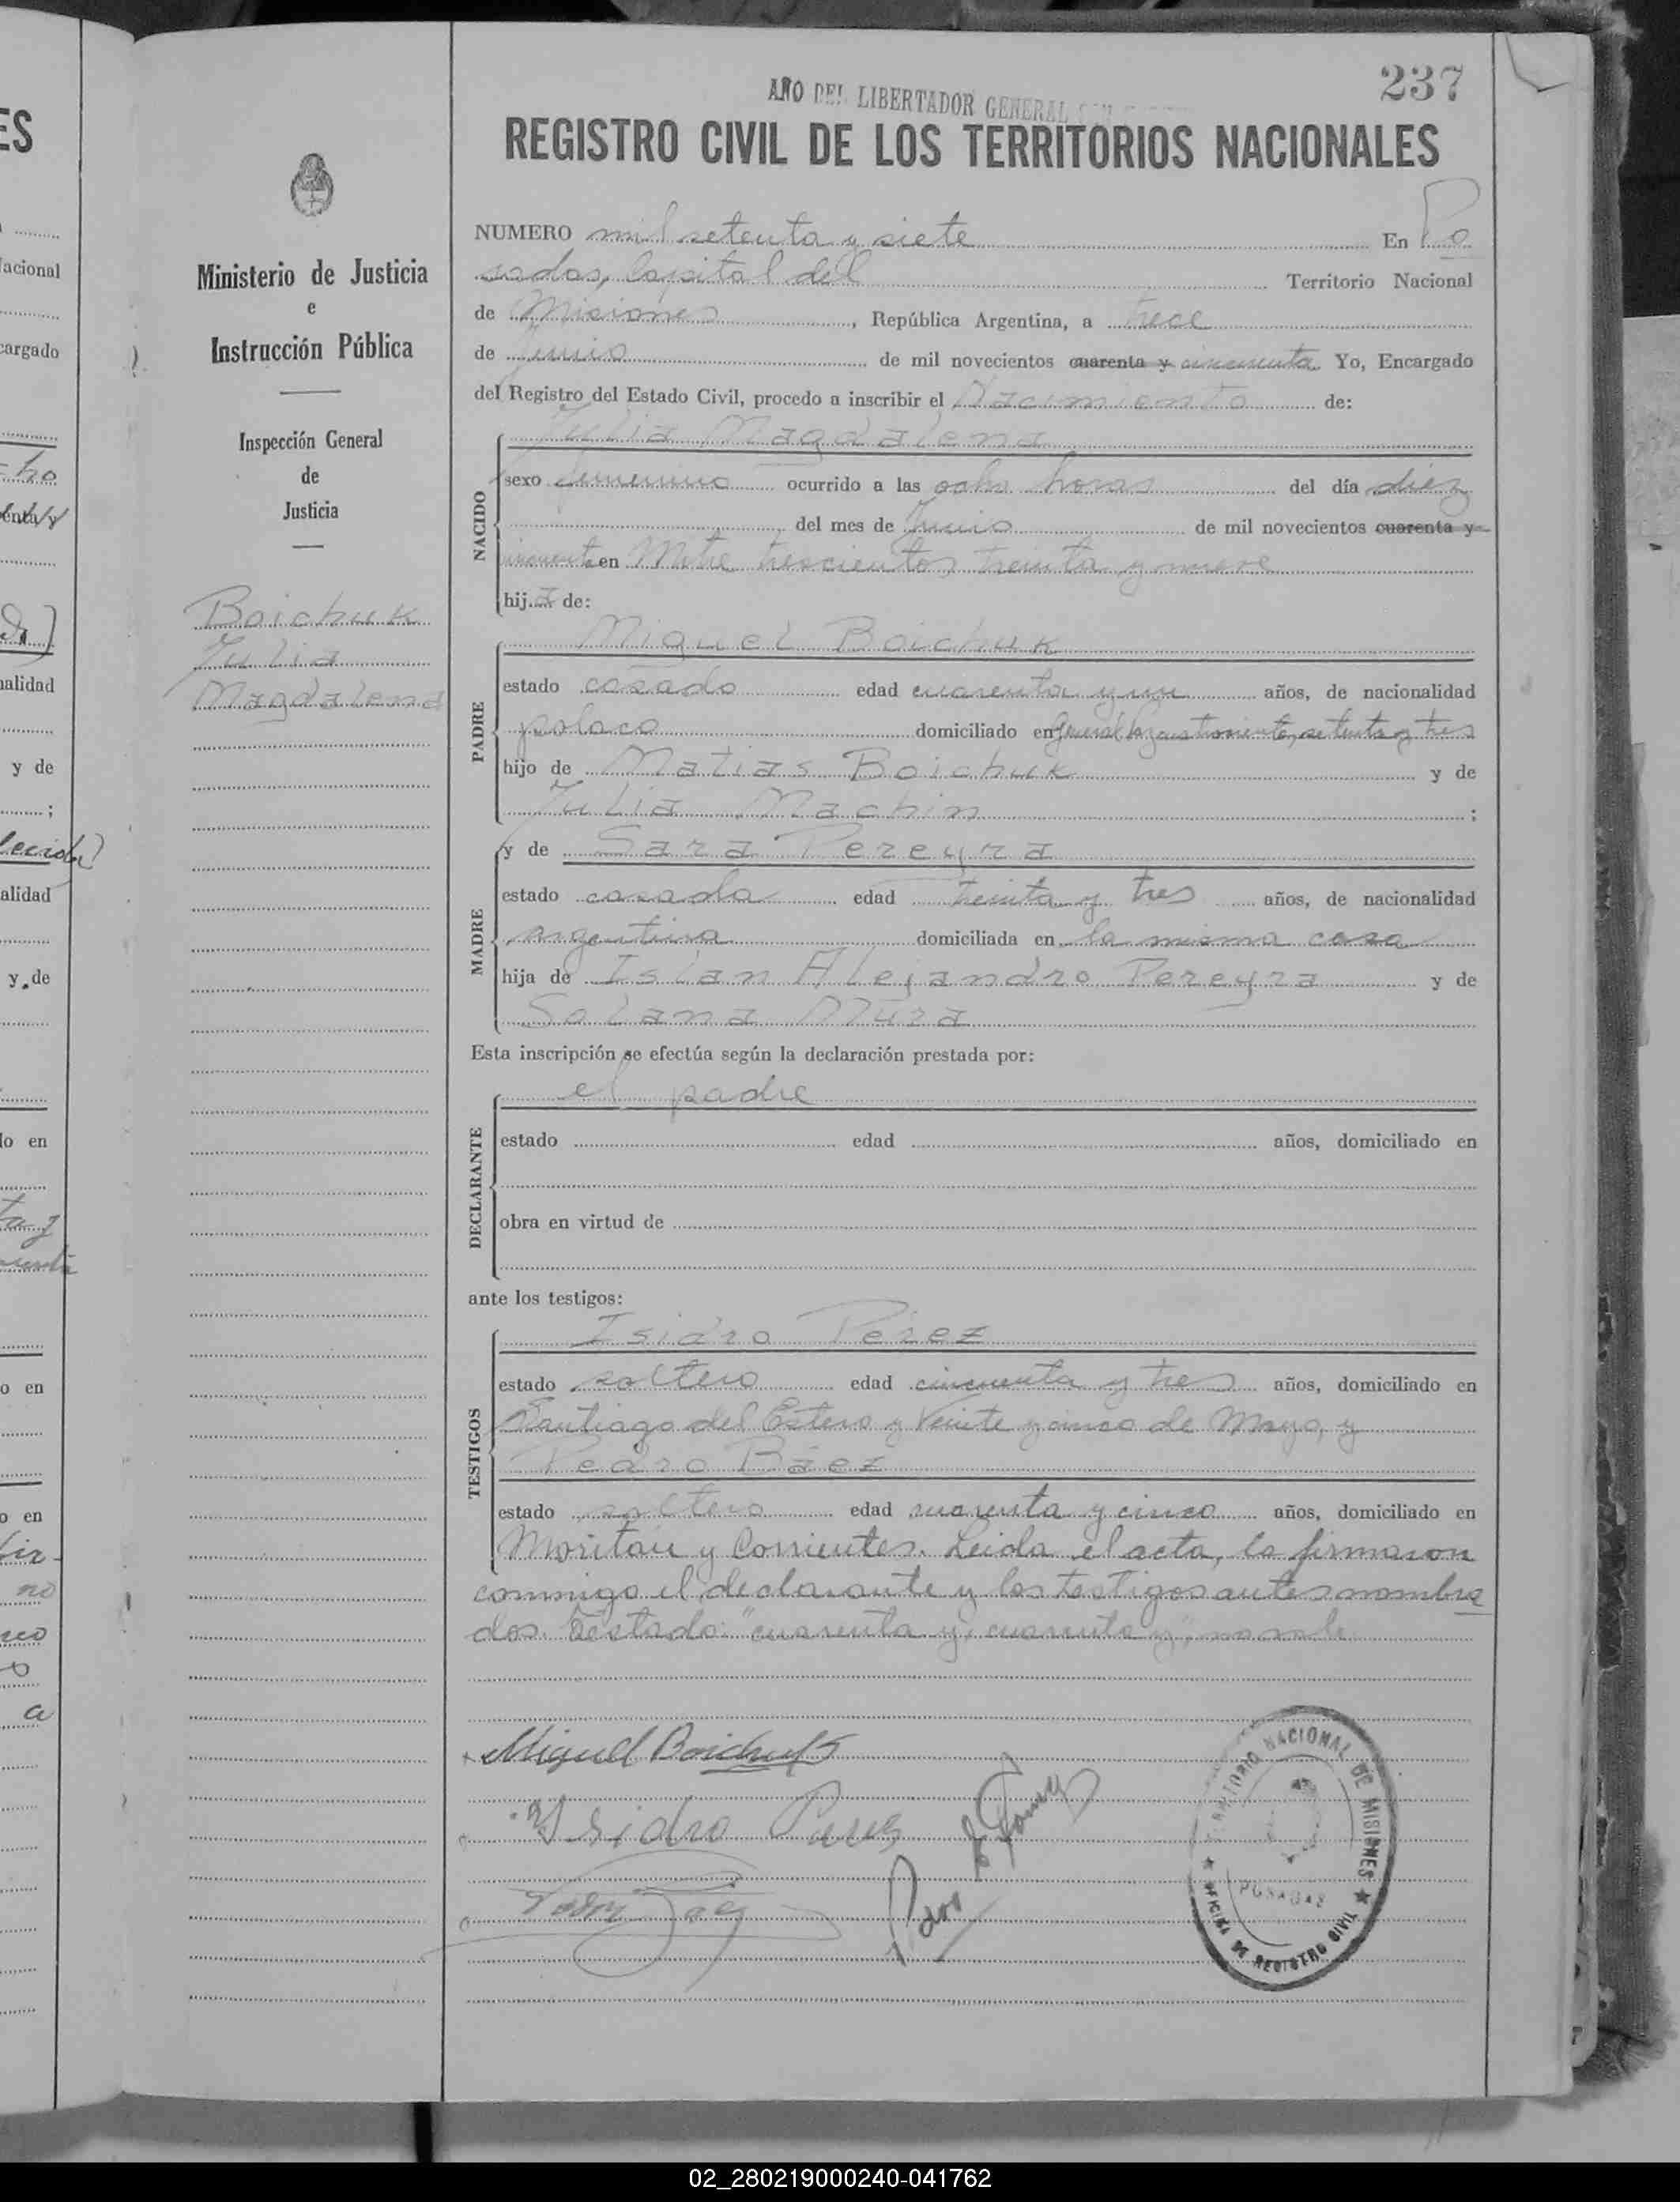 237
AÑO DEL LIBERTADOR GENERAL
REGISTRO CIVIL DE LOS TERRITORIOS NACIONALES
NUMERO mil setenta y siete En Po
sadas, Capital del Territorio Nacional
de Misiones, República Argentina, a trece
de Junio de mil novecientos cuarenta y cincuenta Yo, Encargado
del Registro del Estado Civil, procedo a inscribir el Nacimiento de:
NACIDO
Julia Magdalena
sexo femenino ocurrido a las ocho horas del día diez
del mes de Junio de mil novecientos cuarenta y
cincuenta en Mitre trescientos treinta y nueve
hija de:
PADRE
Miguel Boichuk
estado casado edad cuarenta y un años, de nacionalidad
polaco domiciliado en General setenta y tres
hijo de Matias Boichuk y de
Julia Machin ;
MADRE
y de Sara Pereyra
estado casada edad treinta y tres años, de nacionalidad
argentina domiciliada en la misma casa
hija de Islan Alejandro Pereyra y de
Solana Mura
Esta inscripción se efectúa según la declaración prestada por:
DECLARANTE
el padre
estado edad años, domiciliado en
obra en virtud de
ante los testigos:
TESTIGOS
Isidro Pérez
estado soltero edad cincuenta y tres años, domiciliado en
Santiago del Estero y Veinte y cinco de Mayo, y
Pedro Báez
estado soltero edad cuarenta y cinco años, domiciliado en
Moritán y Corrientes. Leida el acta, la firmaron
conmigo el declarante y los testigos antes nombra
dos. Testado: "cuarenta y, cuarenta y", no vale
Miguel Boichuk
Isidro Perez
TERRITORIO NACIONAL DE MISIONES
POSADAS
OFICINA DE REGISTRO CIVIL
Ministerio de Justicia
e
Instrucción Pública
Inspección General
de
Justicia
Boichuk
Julia
Magdalena
ES
acional
cargado
cho
alidad
y de
;
alidad
y de
lo en
o en
o en
02_280219000240-041762